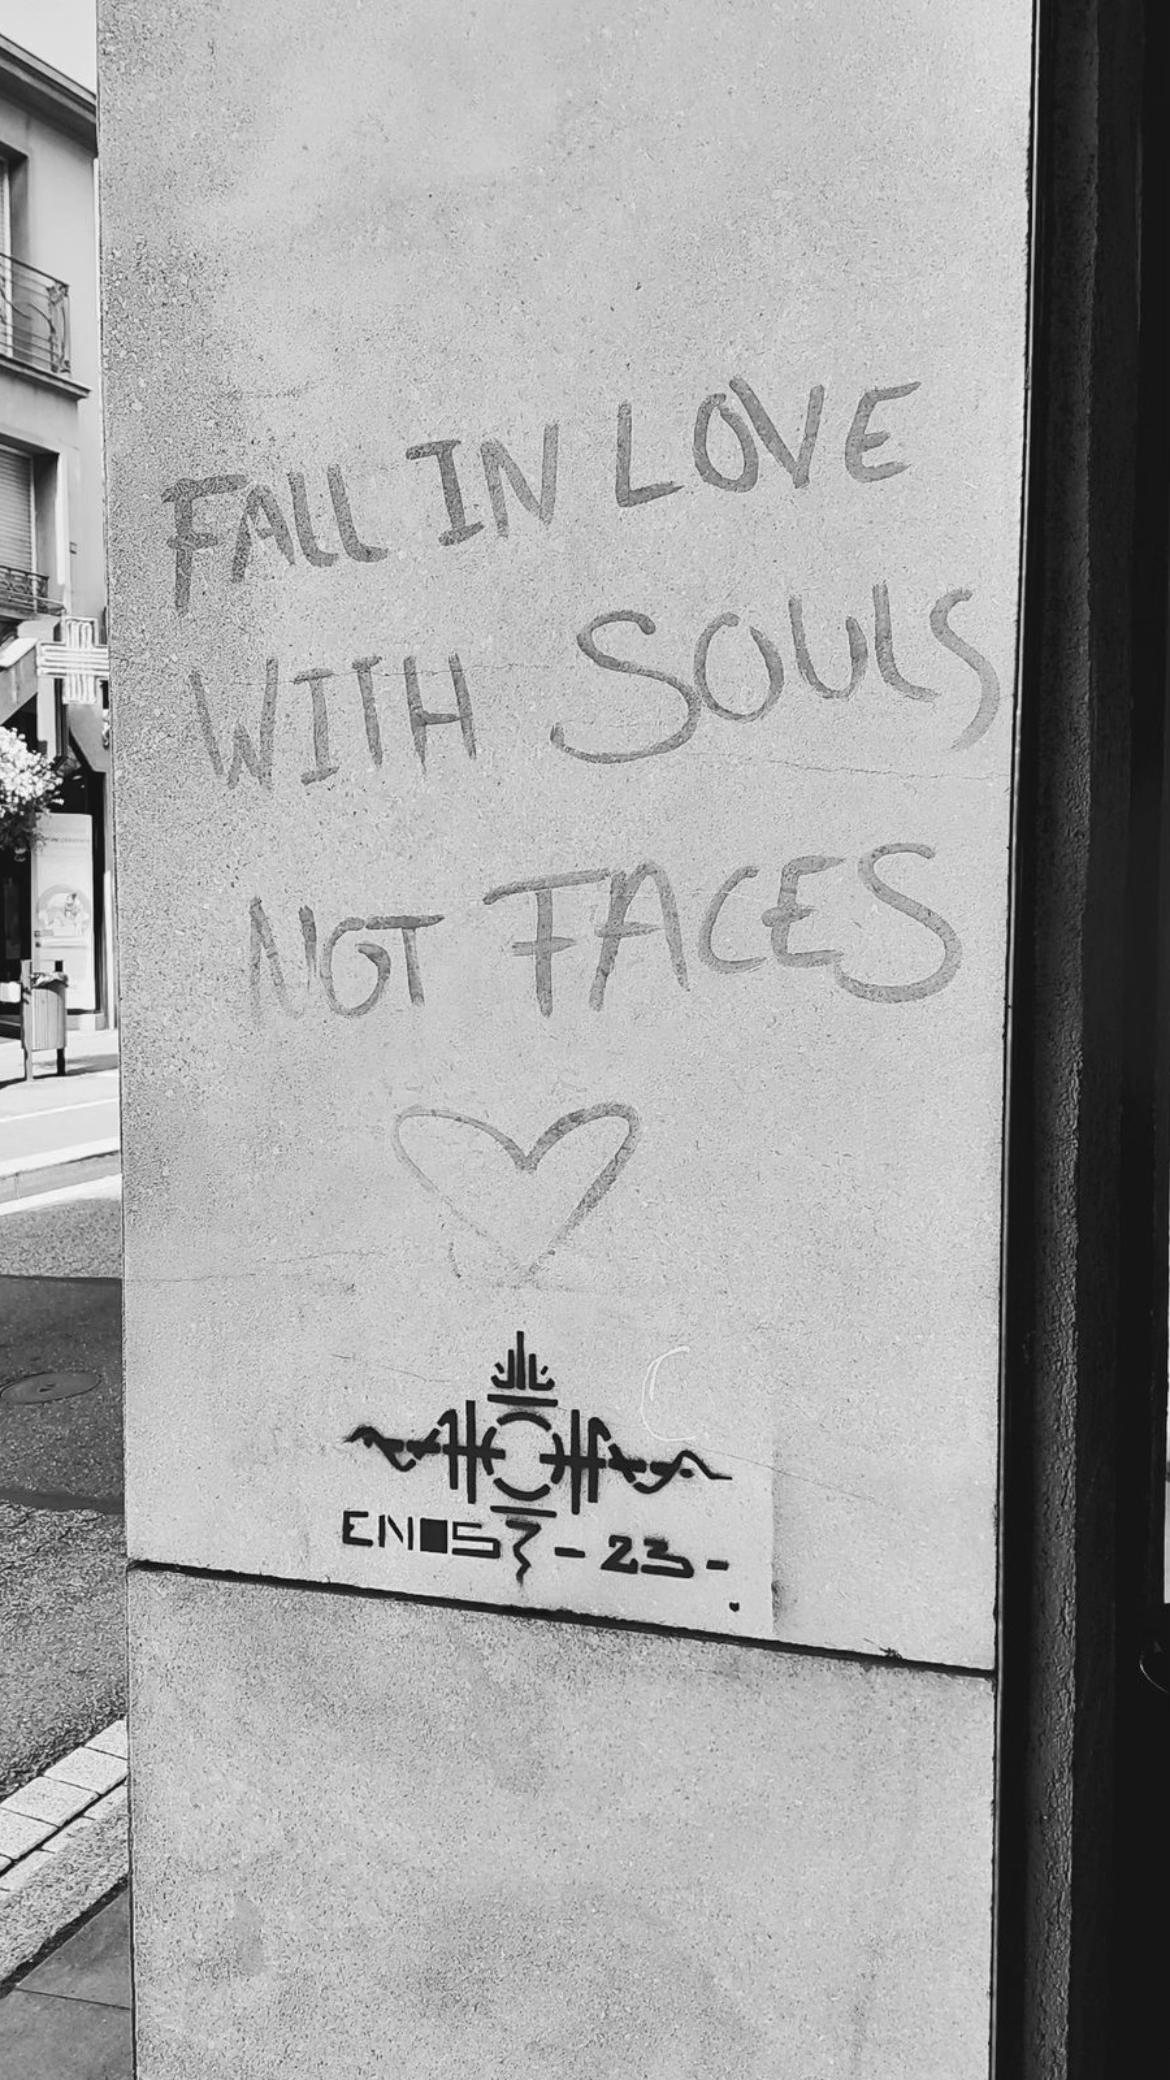 FALL IN LOVE
WITH SOULS
NOT FACES
ENOS - 23 -